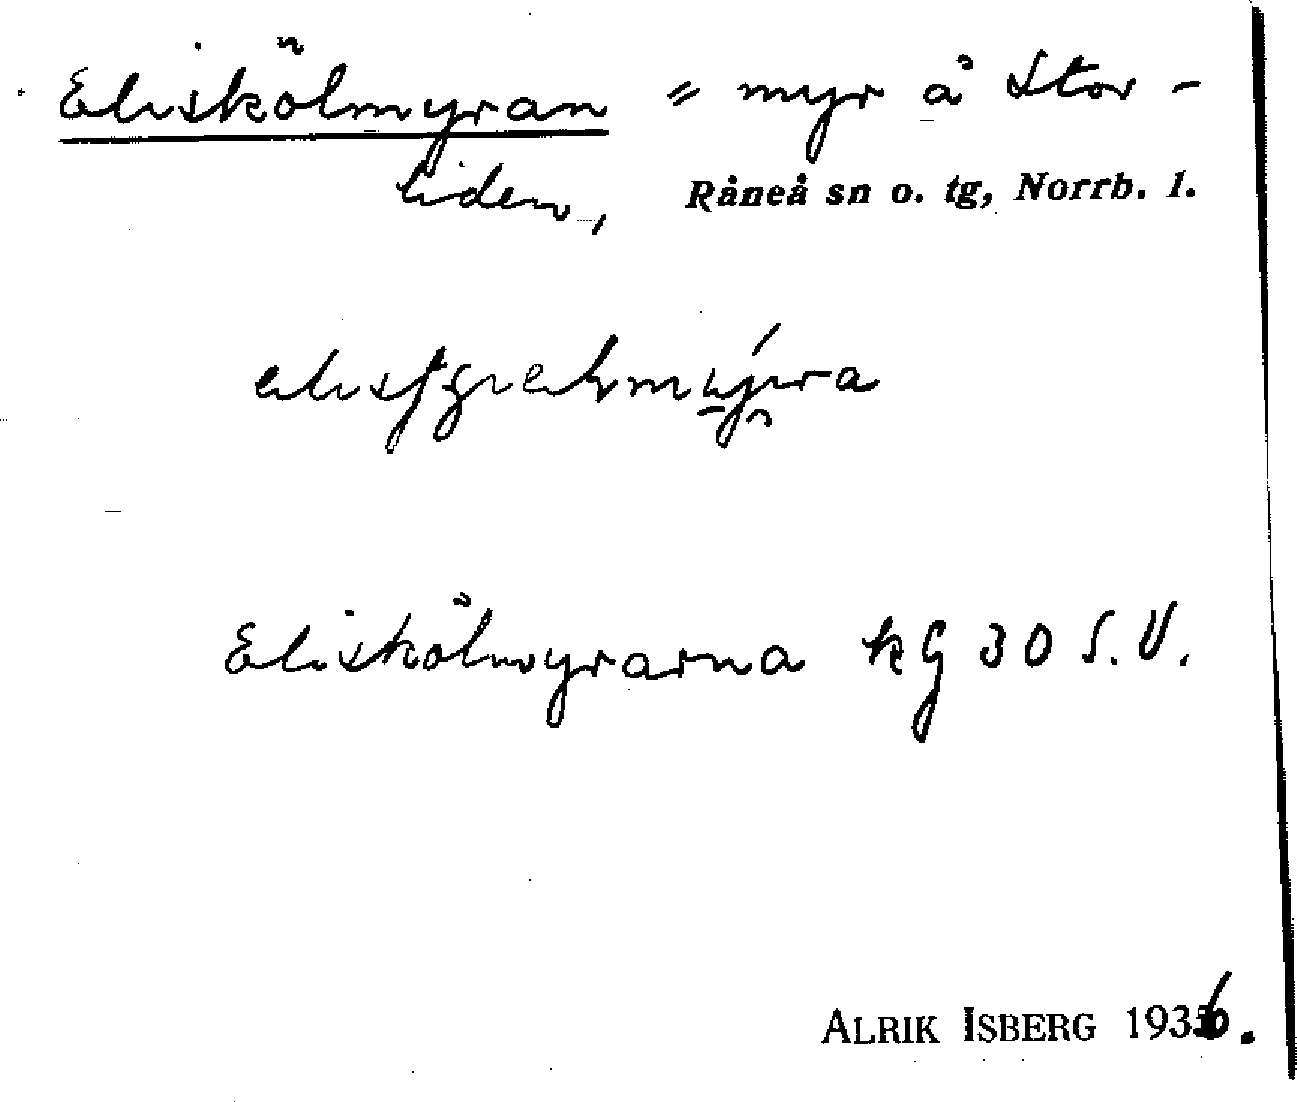 Eliskölmyran = myr å Stor-
liden, Råneå sn o. tg, Norrb. l.
Eliskölmyrarna kg 30 S.V.
ALRIK ISBERG 1936.